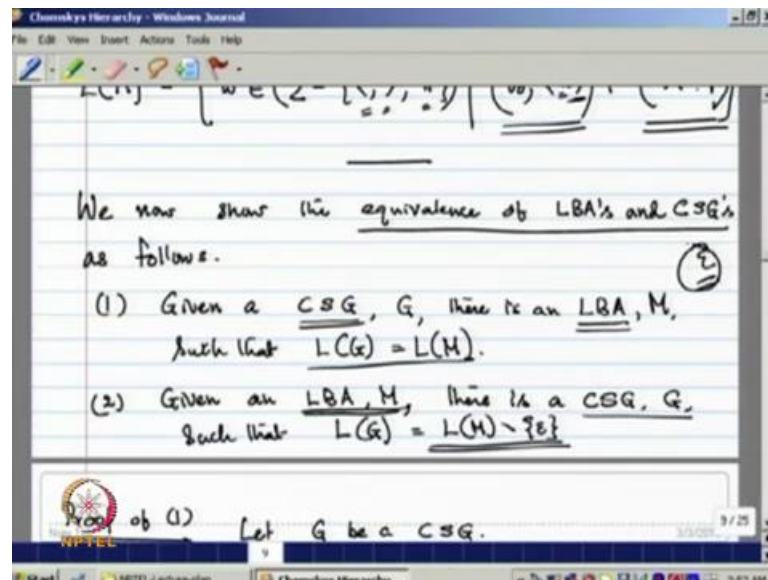 Chomskys Hierarchy - Windows Journal
File Edit View Insert Actions Tools Help
We now show the equivalence of LBA's and CSG's
as follows.
ε
(1) Given a CSG, G, there is an LBA, M,
such that L(G) = L(M).
(2) Given an LBA, M, there is a CSG, G,
Such that L(G) = L(M) \ {ε}
Proof of (1) Let G be a CSG.
NPTEL
9
9 / 25
Start NPTEL-Lecture-plan Chomskys Hierarchy